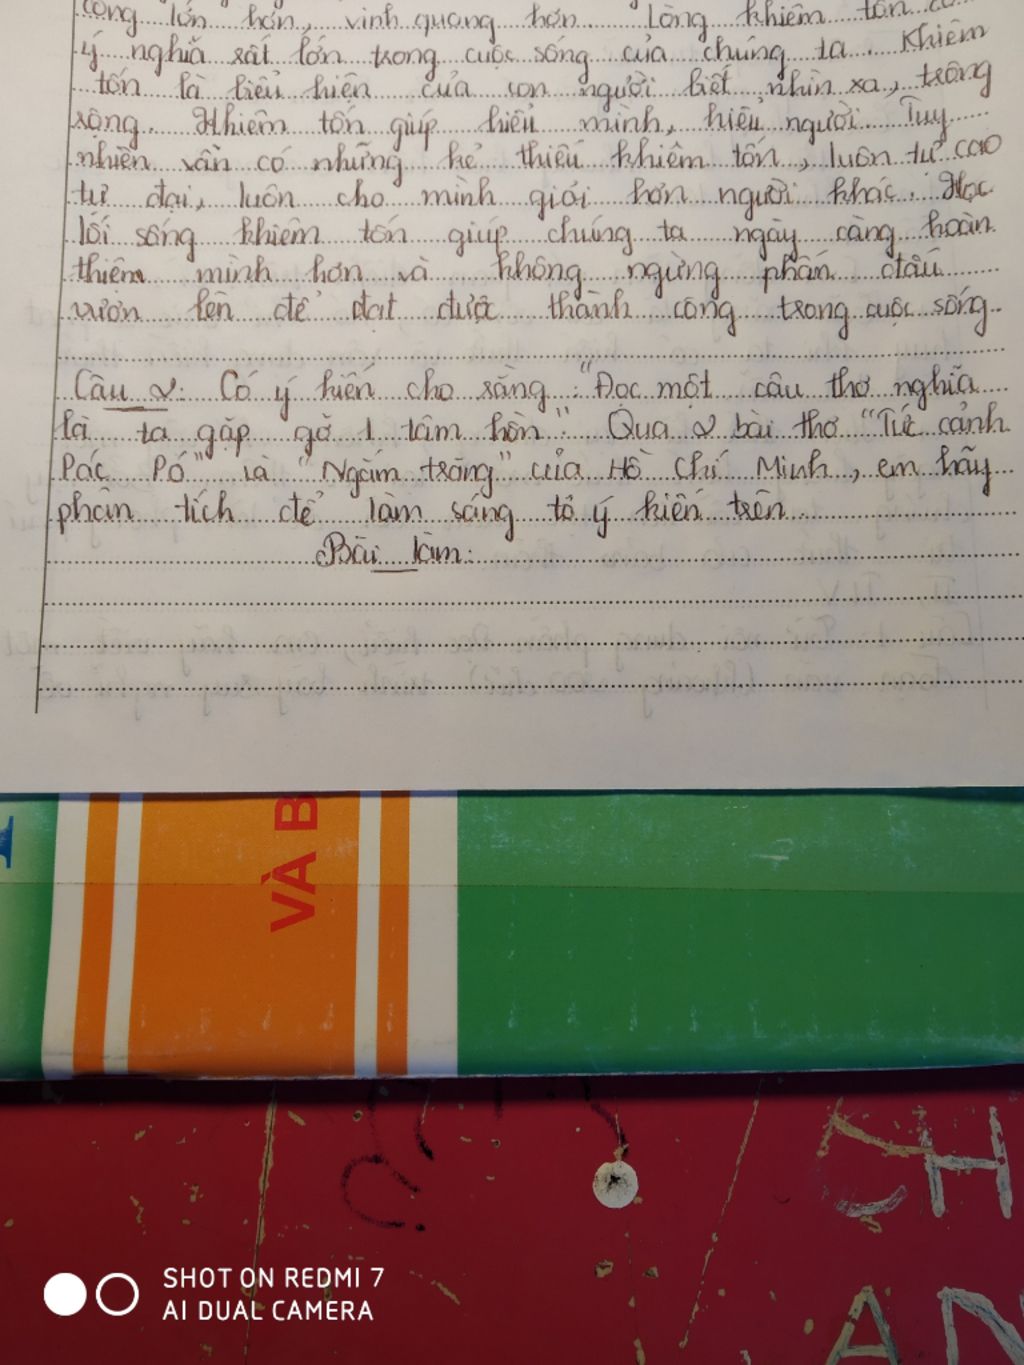 công lớn hơn, vinh quang hơn. Lòng khiêm tốn có
ý nghĩa rất lớn trong cuộc sống của chúng ta. Khiêm
tốn là biểu hiện của con người biết nhìn xa, trông
rộng. Khiêm tốn giúp hiểu mình, hiểu người. Tuy
nhiên vẫn có những kẻ thiếu khiêm tốn, luôn tự cao
tự đại, luôn cho mình giỏi hơn người khác. Học
lối sống khiêm tốn giúp chúng ta ngày càng hoàn
thiện mình hơn và không ngừng phấn đấu
vươn lên để đạt được thành công trong cuộc sống.
Câu 2: Có ý kiến cho rằng: "Đọc một câu thơ nghĩa
là ta gặp gỡ 1 tâm hồn". Qua 2 bài thơ "Tức cảnh
Pác Pó" và "Ngắm trăng" của Hồ Chí Minh, em hãy
phân tích để làm sáng tỏ ý kiến trên.
Bài làm:
VÀ B
CH
AN
SHOT ON REDMI 7
AI DUAL CAMERA